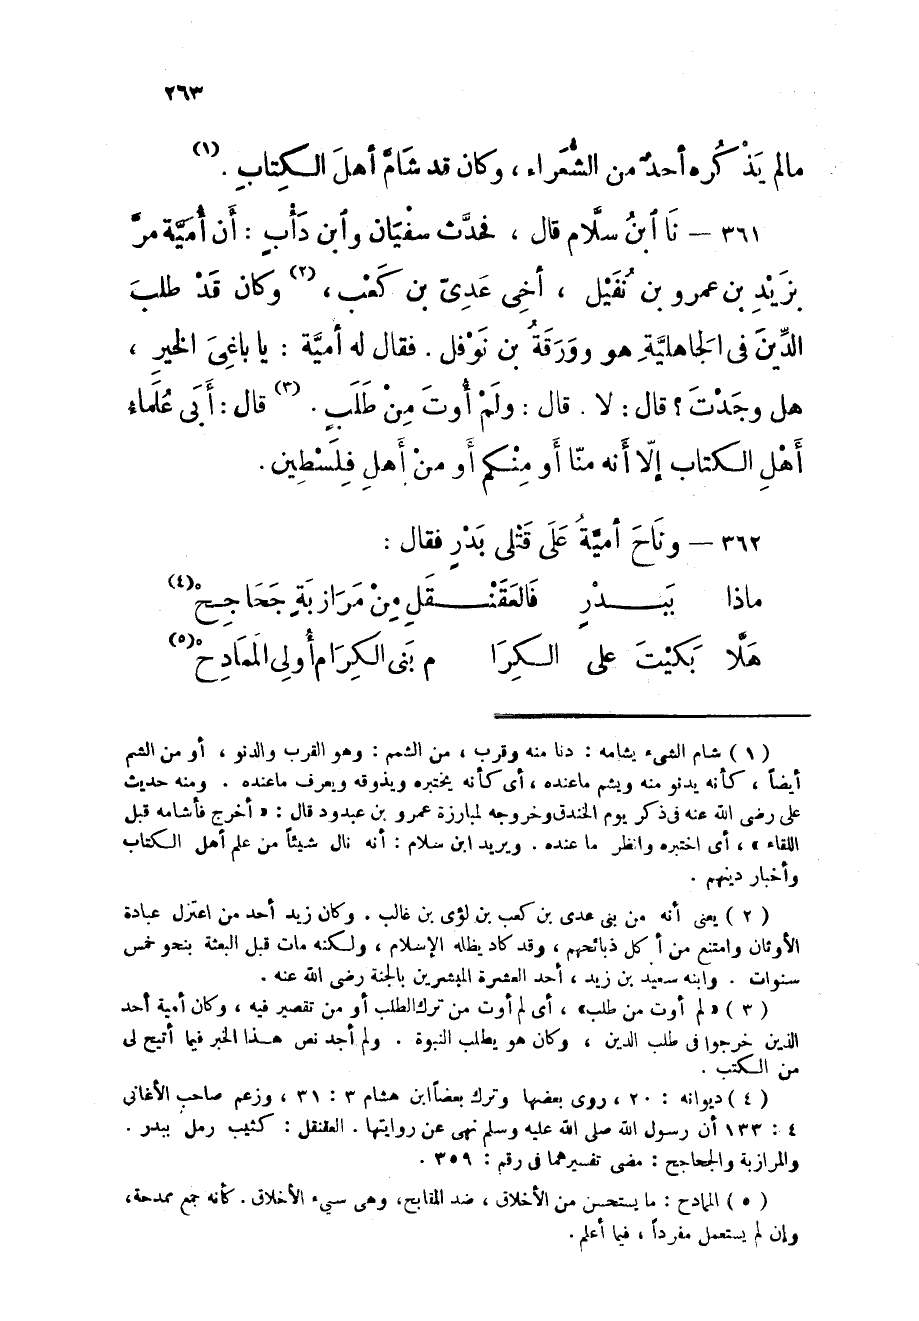 ٢٦٣
مالم يَذْكُره أحدٌ من الشُّعَراء ، وكان قد شَامَّ أهلَ الكِتابِ .(١)
٣٦١ — نَا ٱبنُ سلَّام قال ، فحدَّث سفْيَان وٱبن دَأْبٍ : أَن أُمَيَّة مرَّ
بزَيْدِ بن عمرو بن نُفَيْل ، أخِى عَدِىّ بن كَعْب ،(٢) وكان قَدْ طلبَ
الدِّينَ فى الجَاهليَّةِ هو ووَرَقَةُ بن نَوْفل . فقال له أميَّة : يا باغِىَ الخيرِ ،
هل وجَدْتَ ؟ قال : لا . قال : ولَمْ أُوتَ مِنْ طَلَبٍ .(٣) قال : أَبَى عُلَماء
أَهْلِ الكتاب إلّا أَنه منّا أَو مِنْكم أَو منْ أهلِ فِلَسْطِين .
٣٦٢ — ونَاحَ أميَّةُ عَلَى قَتْلى بَدْرٍ فقال :
ماذا بَبَدْرٍ فَالعَقَنْقَلِ مِنْ مَرَازِبَةٍ جَحَاجِحْ(٤)
هَلَّا بَكَيْتَ على الكِرَا م بَنى الكِرَام أُولِى المَمَادِحْ(٥)
( ١ ) شام الشىء يشامه : دنا منه وقرب ، من الشمم : وهو القرب والدنو ، أو من الشم
أيضاً ، كأنه يدنو منه ويشم ماعنده ، أى كأنه يختبره ويذوقه ويعرف ماعنده . ومنه حديث
على رضى الله عنه فى ذكر يوم الخندق وخروجه لمبارزة عمرو بن عبدود قال : « أخرج فأشامه قبل
اللقاء » ، أى اختبره وانظر ما عنده . ويريد ابن سلام : أنه نال شيئاً من علم أهل الكتاب
وأخبار دينهم .
( ٢ ) يعنى أنه من بنى عدى بن كعب بن لؤى بن غالب . وكان زيد أحد من اعتزل عبادة
الأوثان وامتنع من أكل ذبائحهم ، وقد كاد يظله الإسلام ، ولكنه مات قبل البعثة بنحو خمس
سنوات . وابنه سعيد بن زيد ، أحد العشرة المبشرين بالجنة رضى الله عنه .
( ٣ ) « لم أوت من طلب» ، أى لم أوت من ترك الطلب أو من تقصير فيه ، وكان أمية أحد
الذين خرجوا فى طلب الدين ، وكان هو يطلب النبوة . ولم أجد نص هذا الخبر فيما أتيح لى
من الكتب .
( ٤ ) ديوانه : ٢٠ ، روى بعضها وترك بعضاً ابن هشام ٣ : ٣١ ، وزعم صاحب الأغانى
٤ : ١٣٣ أن رسول الله صلى الله عليه وسلم نهى عن روايتها . العقنقل : كثيب رمل ببدر .
والمرازبة والجحاجح : مضى تفسيرهما فى رقم : ٣٥٩ .
( ٥ ) المادح : ما يستحسن من الأخلاق ، ضد المقابح، وهى سيىء الأخلاق . كأنه جمع ممدحة،
وإن لم يستعمل مفرداً ، فيما أعلم .